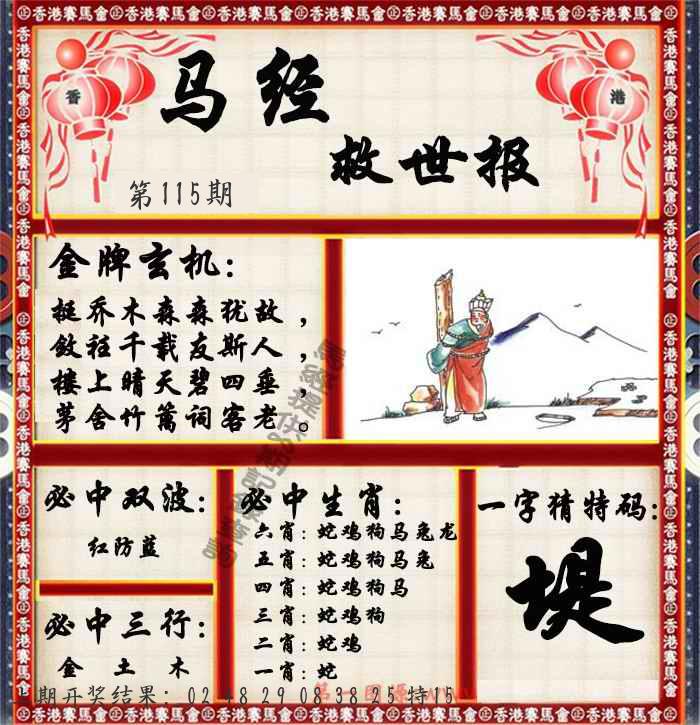 香港賽馬會
香 港
马经
救世报
第115期
金牌玄机：
挺乔木森森犹故，
敛衽千载友斯人，
楼上晴天碧四垂，
茅舍竹篱词客老。
必中双波：
红防蓝
必中三行：
金 土 木
必中生肖：
六肖：蛇鸡狗马兔龙
五肖：蛇鸡狗马兔
四肖：蛇鸡狗马
三肖：蛇鸡狗
二肖：蛇鸡
一肖：蛇
一字猜特码：
堤
期开奖结果：02 48 29 08 38 25特15